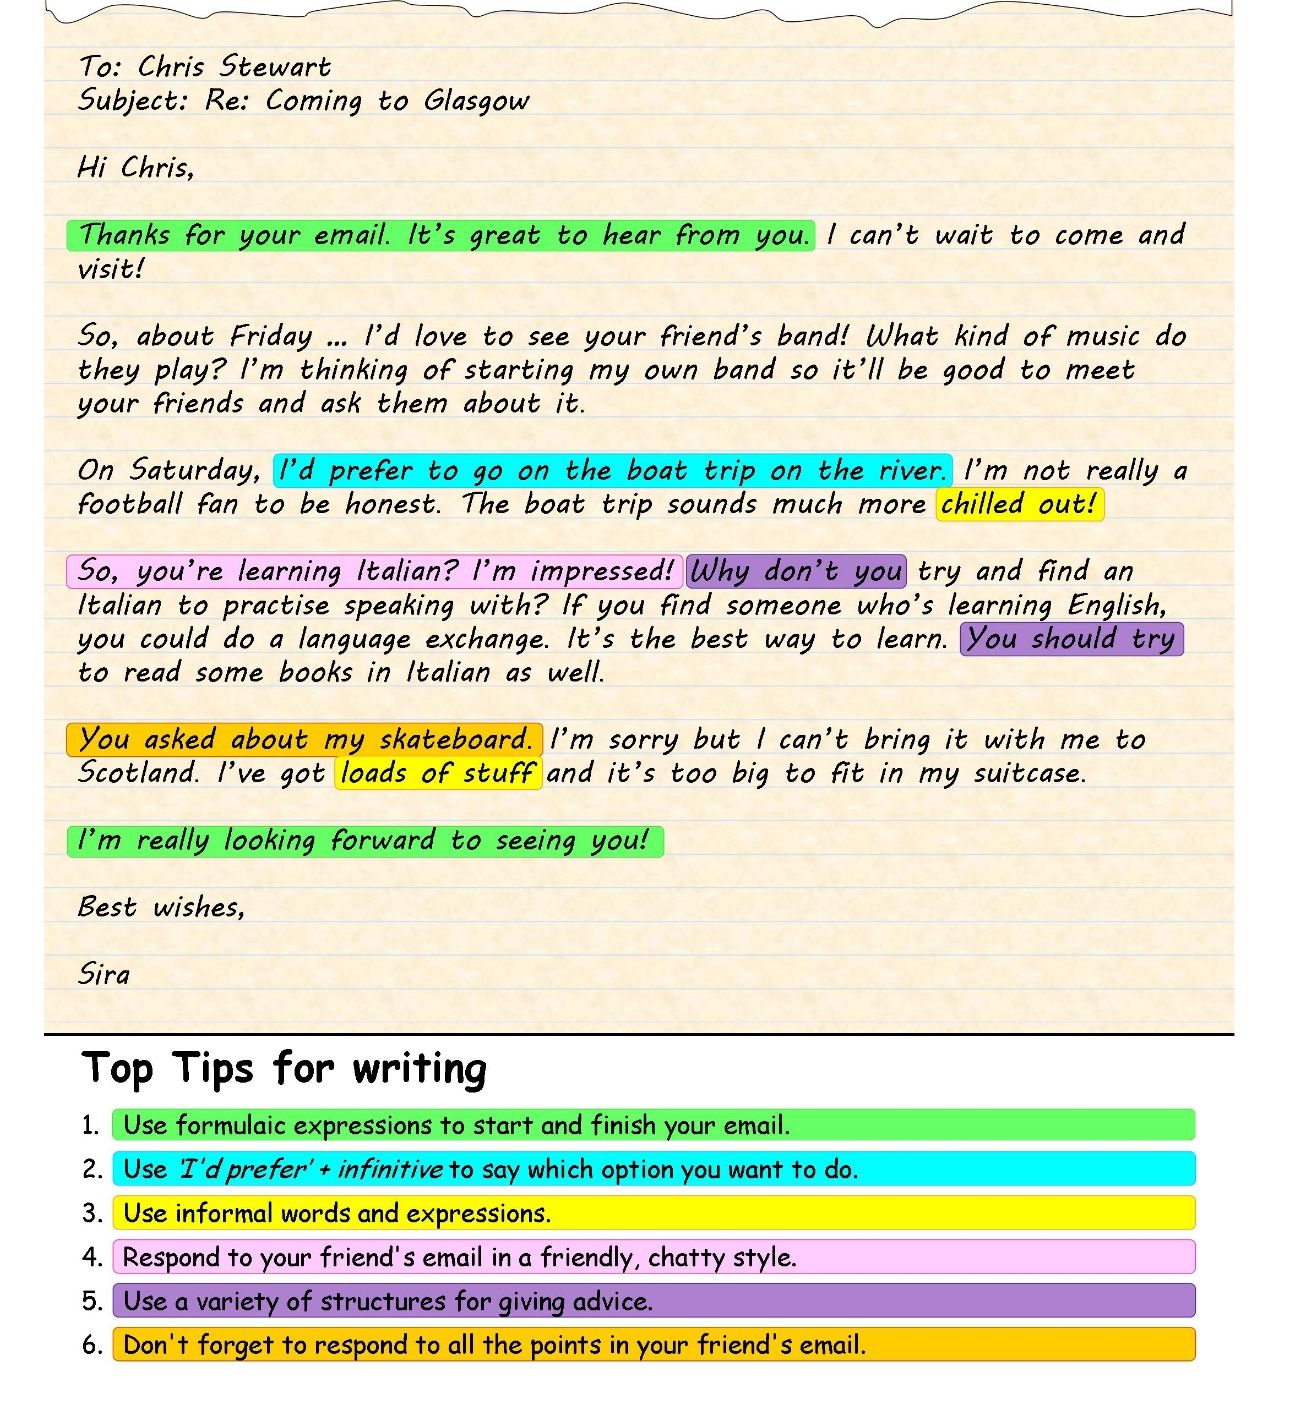 To: Chris Stewart
Subject: Re: Coming to Glasgow
Hi Chris,
Thanks for your email. It's great to hear from you. I can't wait to come and
visit!
So, about Friday ... I'd love to see your friend's band! What kind of music do
they play? I'm thinking of starting my own band so it'll be good to meet
your friends and ask them about it.
On Saturday, I'd prefer to go on the boat trip on the river. I'm not really a
football fan to be honest. The boat trip sounds much more chilled out!
So, you're learning Italian? I'm impressed! Why don't you try and find an
Italian to practise speaking with? If you find someone who's learning English,
you could do a language exchange. It's the best way to learn. You should try
to read some books in Italian as well.
You asked about my skateboard. I'm sorry but I can't bring it with me to
Scotland. I've got loads of stuff and it's too big to fit in my suitcase.
I'm really looking forward to seeing you!
Best wishes,
Sira
Top Tips for writing
1. Use formulaic expressions to start and finish your email.
2. Use 'I'd prefer' + infinitive to say which option you want to do.
3. Use informal words and expressions.
4. Respond to your friend's email in a friendly, chatty style.
5. Use a variety of structures for giving advice.
6. Don't forget to respond to all the points in your friend's email.